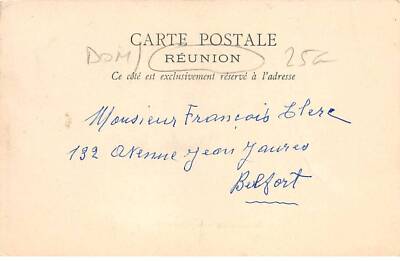 CARTE POSTALE
DOM/ RÉUNION 25€
Ce côté est exclusivement réservé à l'adresse
Monsieur François Clerc
192 Avenue Jean Jaures
Belfort